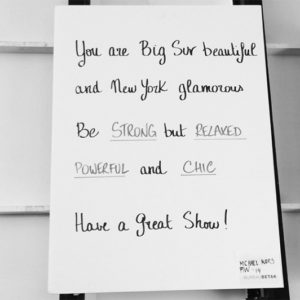 You are Big Sur beautiful
and New York glamorous
Be STRONG but RELAXED
POWERFUL and CHIC
Have a Great Show!
MICHAEL KORS